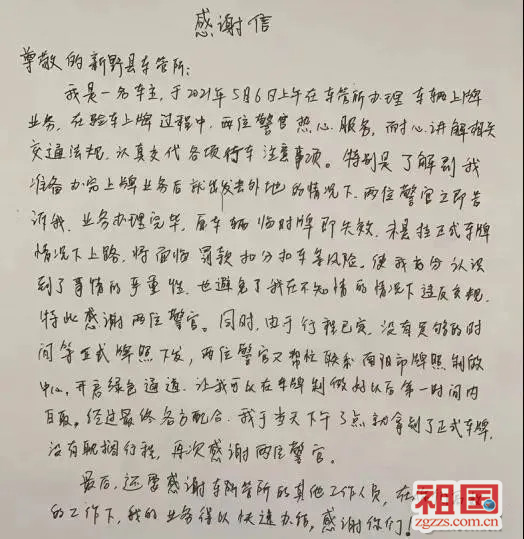 感谢信
尊敬的新野县车管所:
我是一名车主,于2021年5月6日上午在车管所办理车辆上牌
业务,在验车上牌过程中,两位警官热心服务,耐心讲解相关
交通法规,认真交代各项行车注意事项。特别是了解到我
准备办完上牌业务后就出发去外地的情况下,两位警官立即告
诉我,业务办理完毕,原车辆临时牌即失效,未悬挂正式车牌
情况下上路,将面临罚款扣分扣车等风险。使我充分认识
到了事情的严重性,也避免了我在不知情的情况下违反交规,
特此感谢两位警官。同时,由于行程已定,没有足够的时
间等正式牌照下发,两位警官又帮忙联系南阳市牌照制做
中心,开启绿色通道,让我可以在车牌制做好以后第一时间内
自取。经过最终各方配合,我于当天下午3点就拿到了正式车牌,
没有耽搁行程,再次感谢两位警官。
最后,还要感谢车管所的其他工作人员,在
的工作下,我的业务得以快速办结,感谢你们!
祖国
zgzzs.com.cn